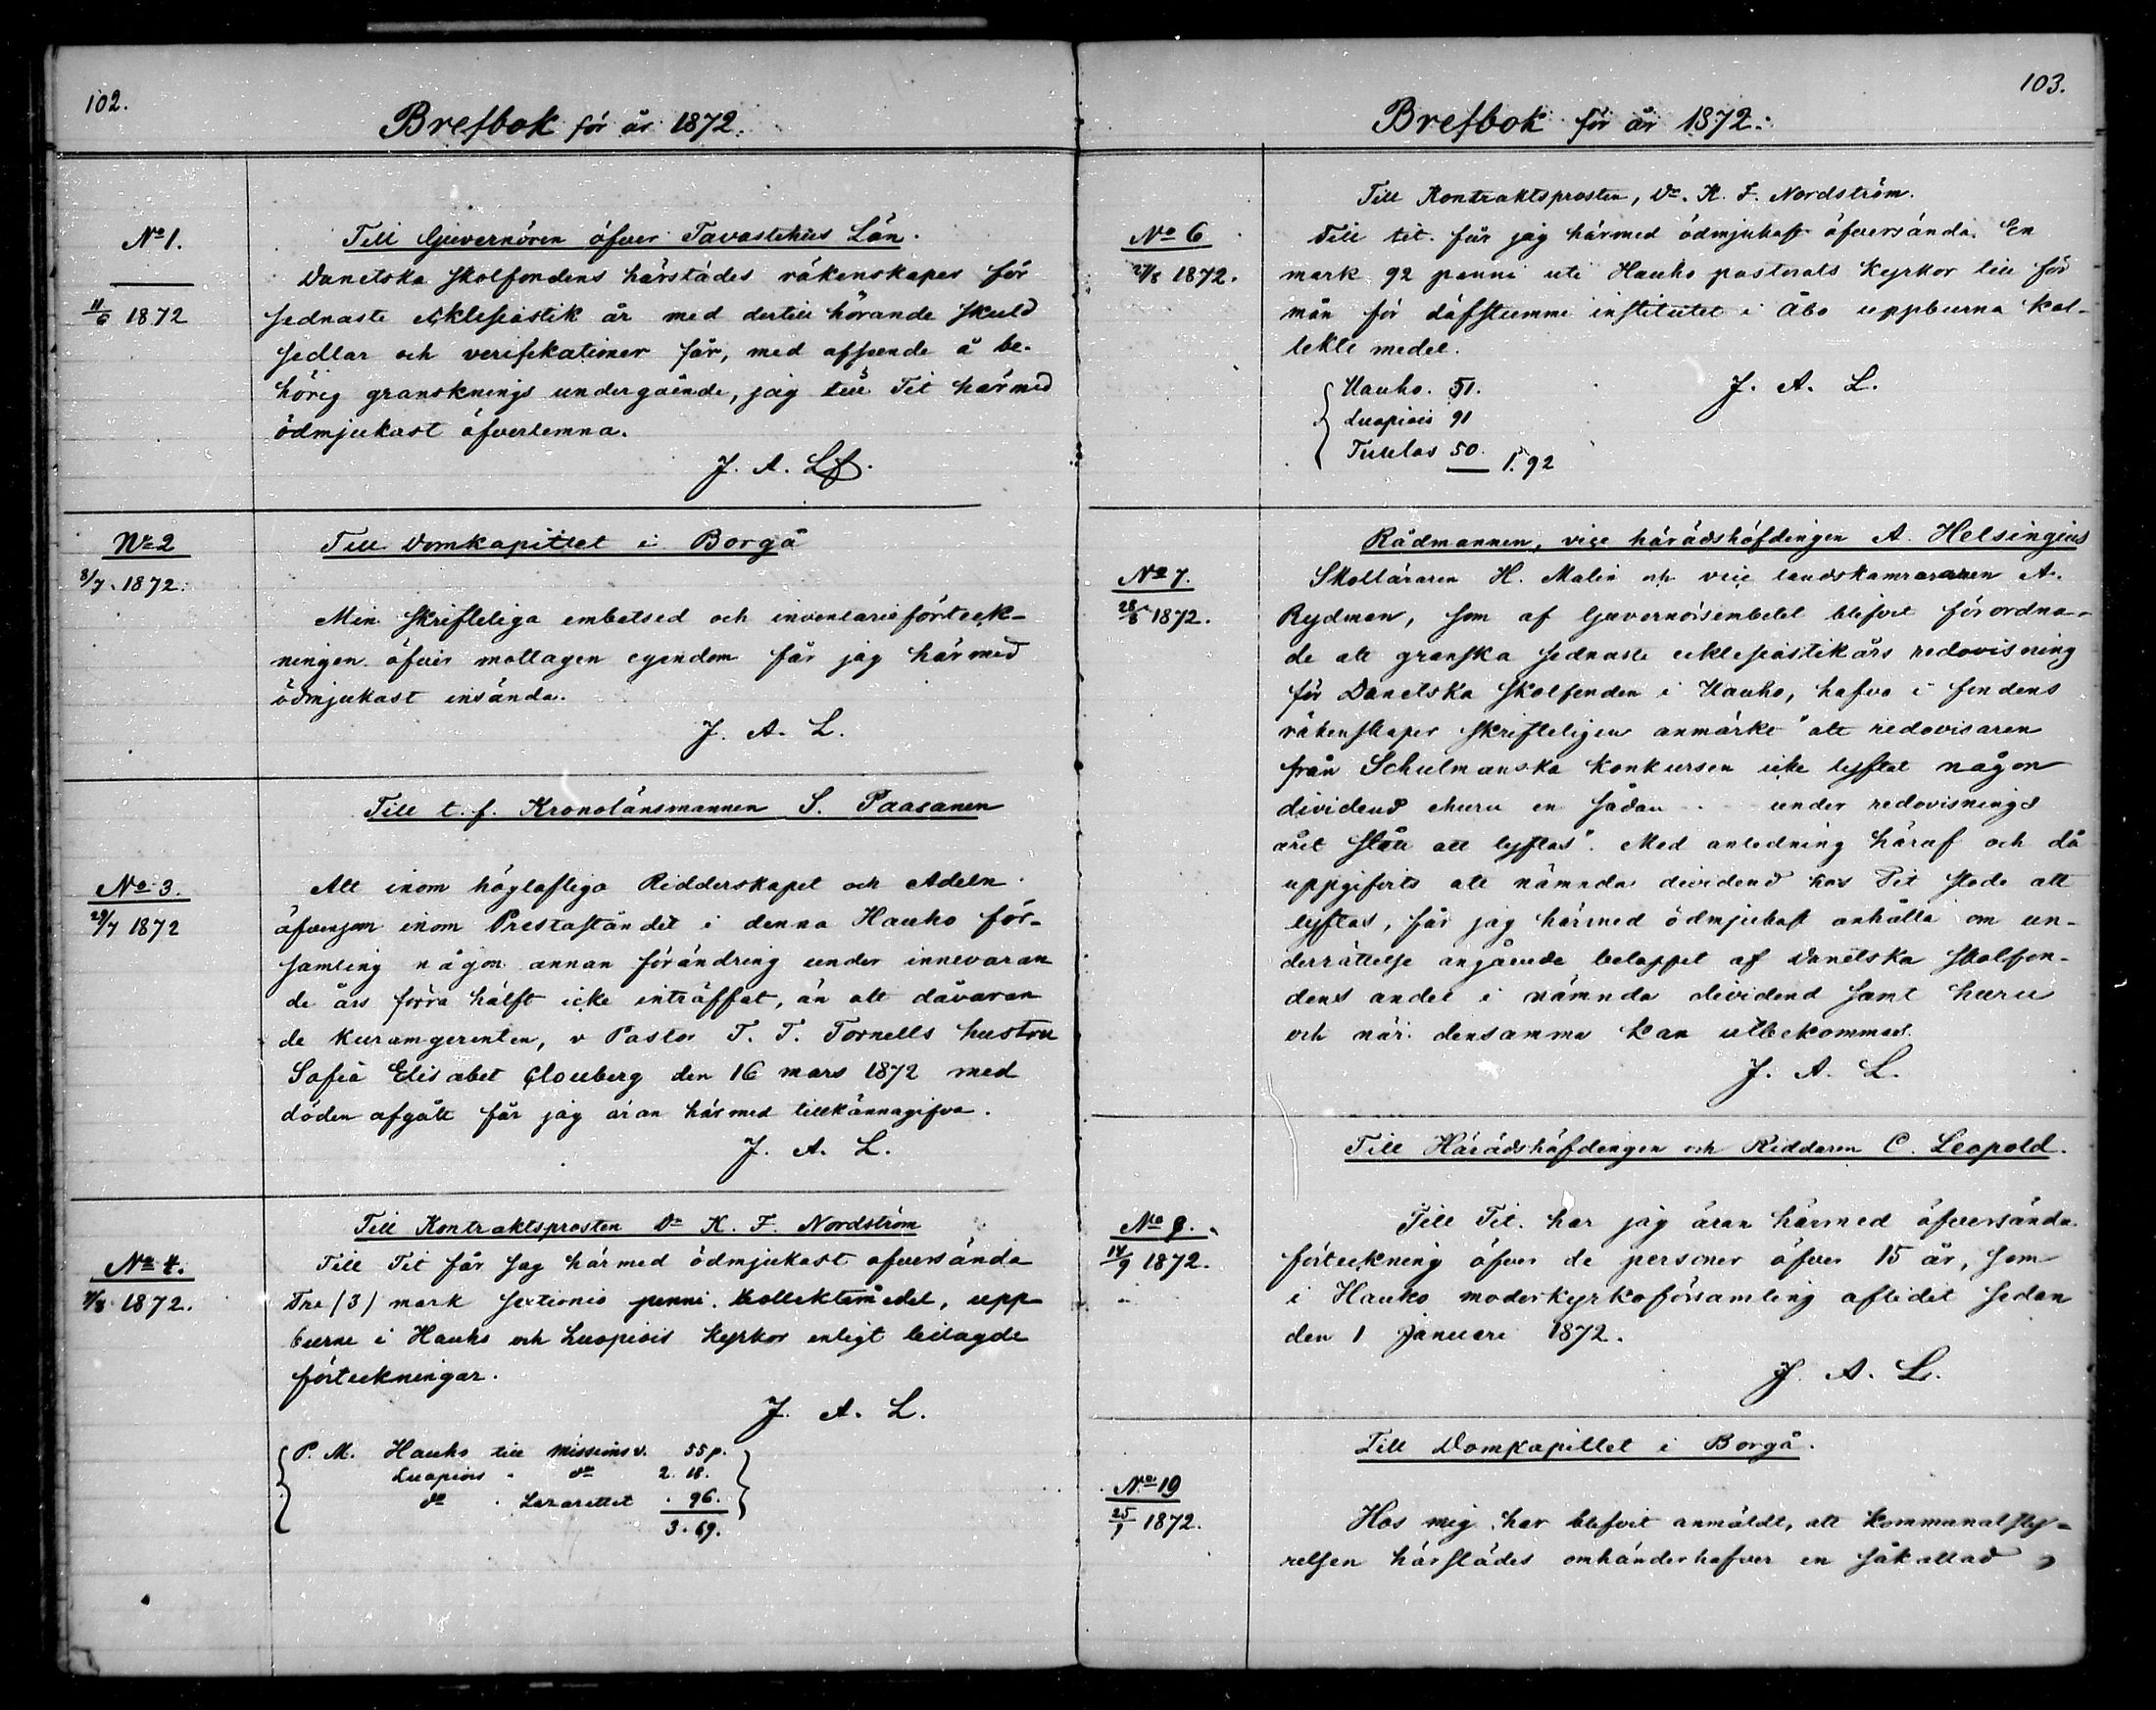 102.
Brefbok för år 1872.
No 1.
11/6 1872
Till Guvernören öfver Tavastehus Län.
Danelska skolfondens härstädes räkenskaper för
sednaste ecklesiastik år med dertill hörande skuld
sedlar och verifikationer får, med afseende å be-
hörig gransknings undergående, jag till Tit härmed
ödmjukast öfverlemna.
J. A. L.
No 2
8/7. 1872.
Till Domkapitlet i Borgå
Min skriftliga embetsed och inventarieförteck-
ningen öfver mottagen egendom får jag härmed
ödmjukast insända.
J. A. L.
Till t. f. Kronolänsmannen S. Paasanen
No 3.
29/7 1872
Att inom höglofliga Ridderskapet och Adeln
äfvensom inom Presteståndet i denna Hauho för-
samling någon annan förändring under innevaran
de års förra hälft icke inträffat, än att dåvaran
de kuramgerenten, v Pastor T. T. Tornells hustru
Sofia Elisabet Clouberg den 16 mars 1872 med
döden afgått får jag äran härmed tillkännagifva.
J. A. L.
Till Kontraktsprosten Dr K. F. Nordström
No 4.
1872.
Till Tit får jag härmed ödmjukast öfversända
Tre (3) mark sextionio penni kollektmedel, upp
burne i Hauho och Luopiois kyrkor enligt bilagde
förteckningar.
J. A. L.
P. M. Hauho till missions v. 55 p.
Luopiois " do 2. 18.
do " Lazarettet . 96.
3. 69.
103.
Brefbok för år 1872.
Till Kontraktsprosten, Dr. K. F. Nordström.
No 6
27/8 1872.
Till tit. får jag härmed ödmjukast öfversända En
mark 92 penni uti Hauho pastorats kyrkor till för
mån för döfstumme institutet i Åbo uppburna kol-
lekte medel.
Hauho. 51.
Luopiois 91
Tuulos 50.
1. 92
J. A. L.
Rådmannen, vice häradshöfdingen A. Helsingius
No 7.
28/8 1872.
Skolläraren H. Malin och vice landskamreraren A.
Rydman, som af Guvernörsembetet blifvit förordna-
de att granska sednaste ecklesiastikårs redovisning
för Danelska skolfonden i Hauho, hafva i fondens
räkenskaper skriftligen anmärkt "att redovisaren
från Schulmanska konkursen icke lyftat någon
dividend ehuru en sådan under redovisnings
året stått att lyftas". Med anledning häraf och då
uppgifvits att nämnda dividend hos Tit stode att
lyftas, får jag härmed ödmjukast anhålla om un-
derrättelse angående beloppet af Danelska skolfon-
dens andel i nämnda dividend samt huru
och när densamma kan utbekommas.
J. A. L.
Till Häradshöfdingen och Riddaren C. Leopold.
No 8.
14/9 1872.
Till Tit. har jag äran härmed öfversända
förteckning öfver de personer öfver 15 år, som
i Hauho moderkyrkoförsamling aflidit sedan
den 1 Januari 1872.
J. A. L.
Till Domkapitlet i Borgå.
No 19
25/9 1872.
Hos mig har blifvit anmäldt, att kommunalsty-
relsen härstädes omhänderhafver en såkallad